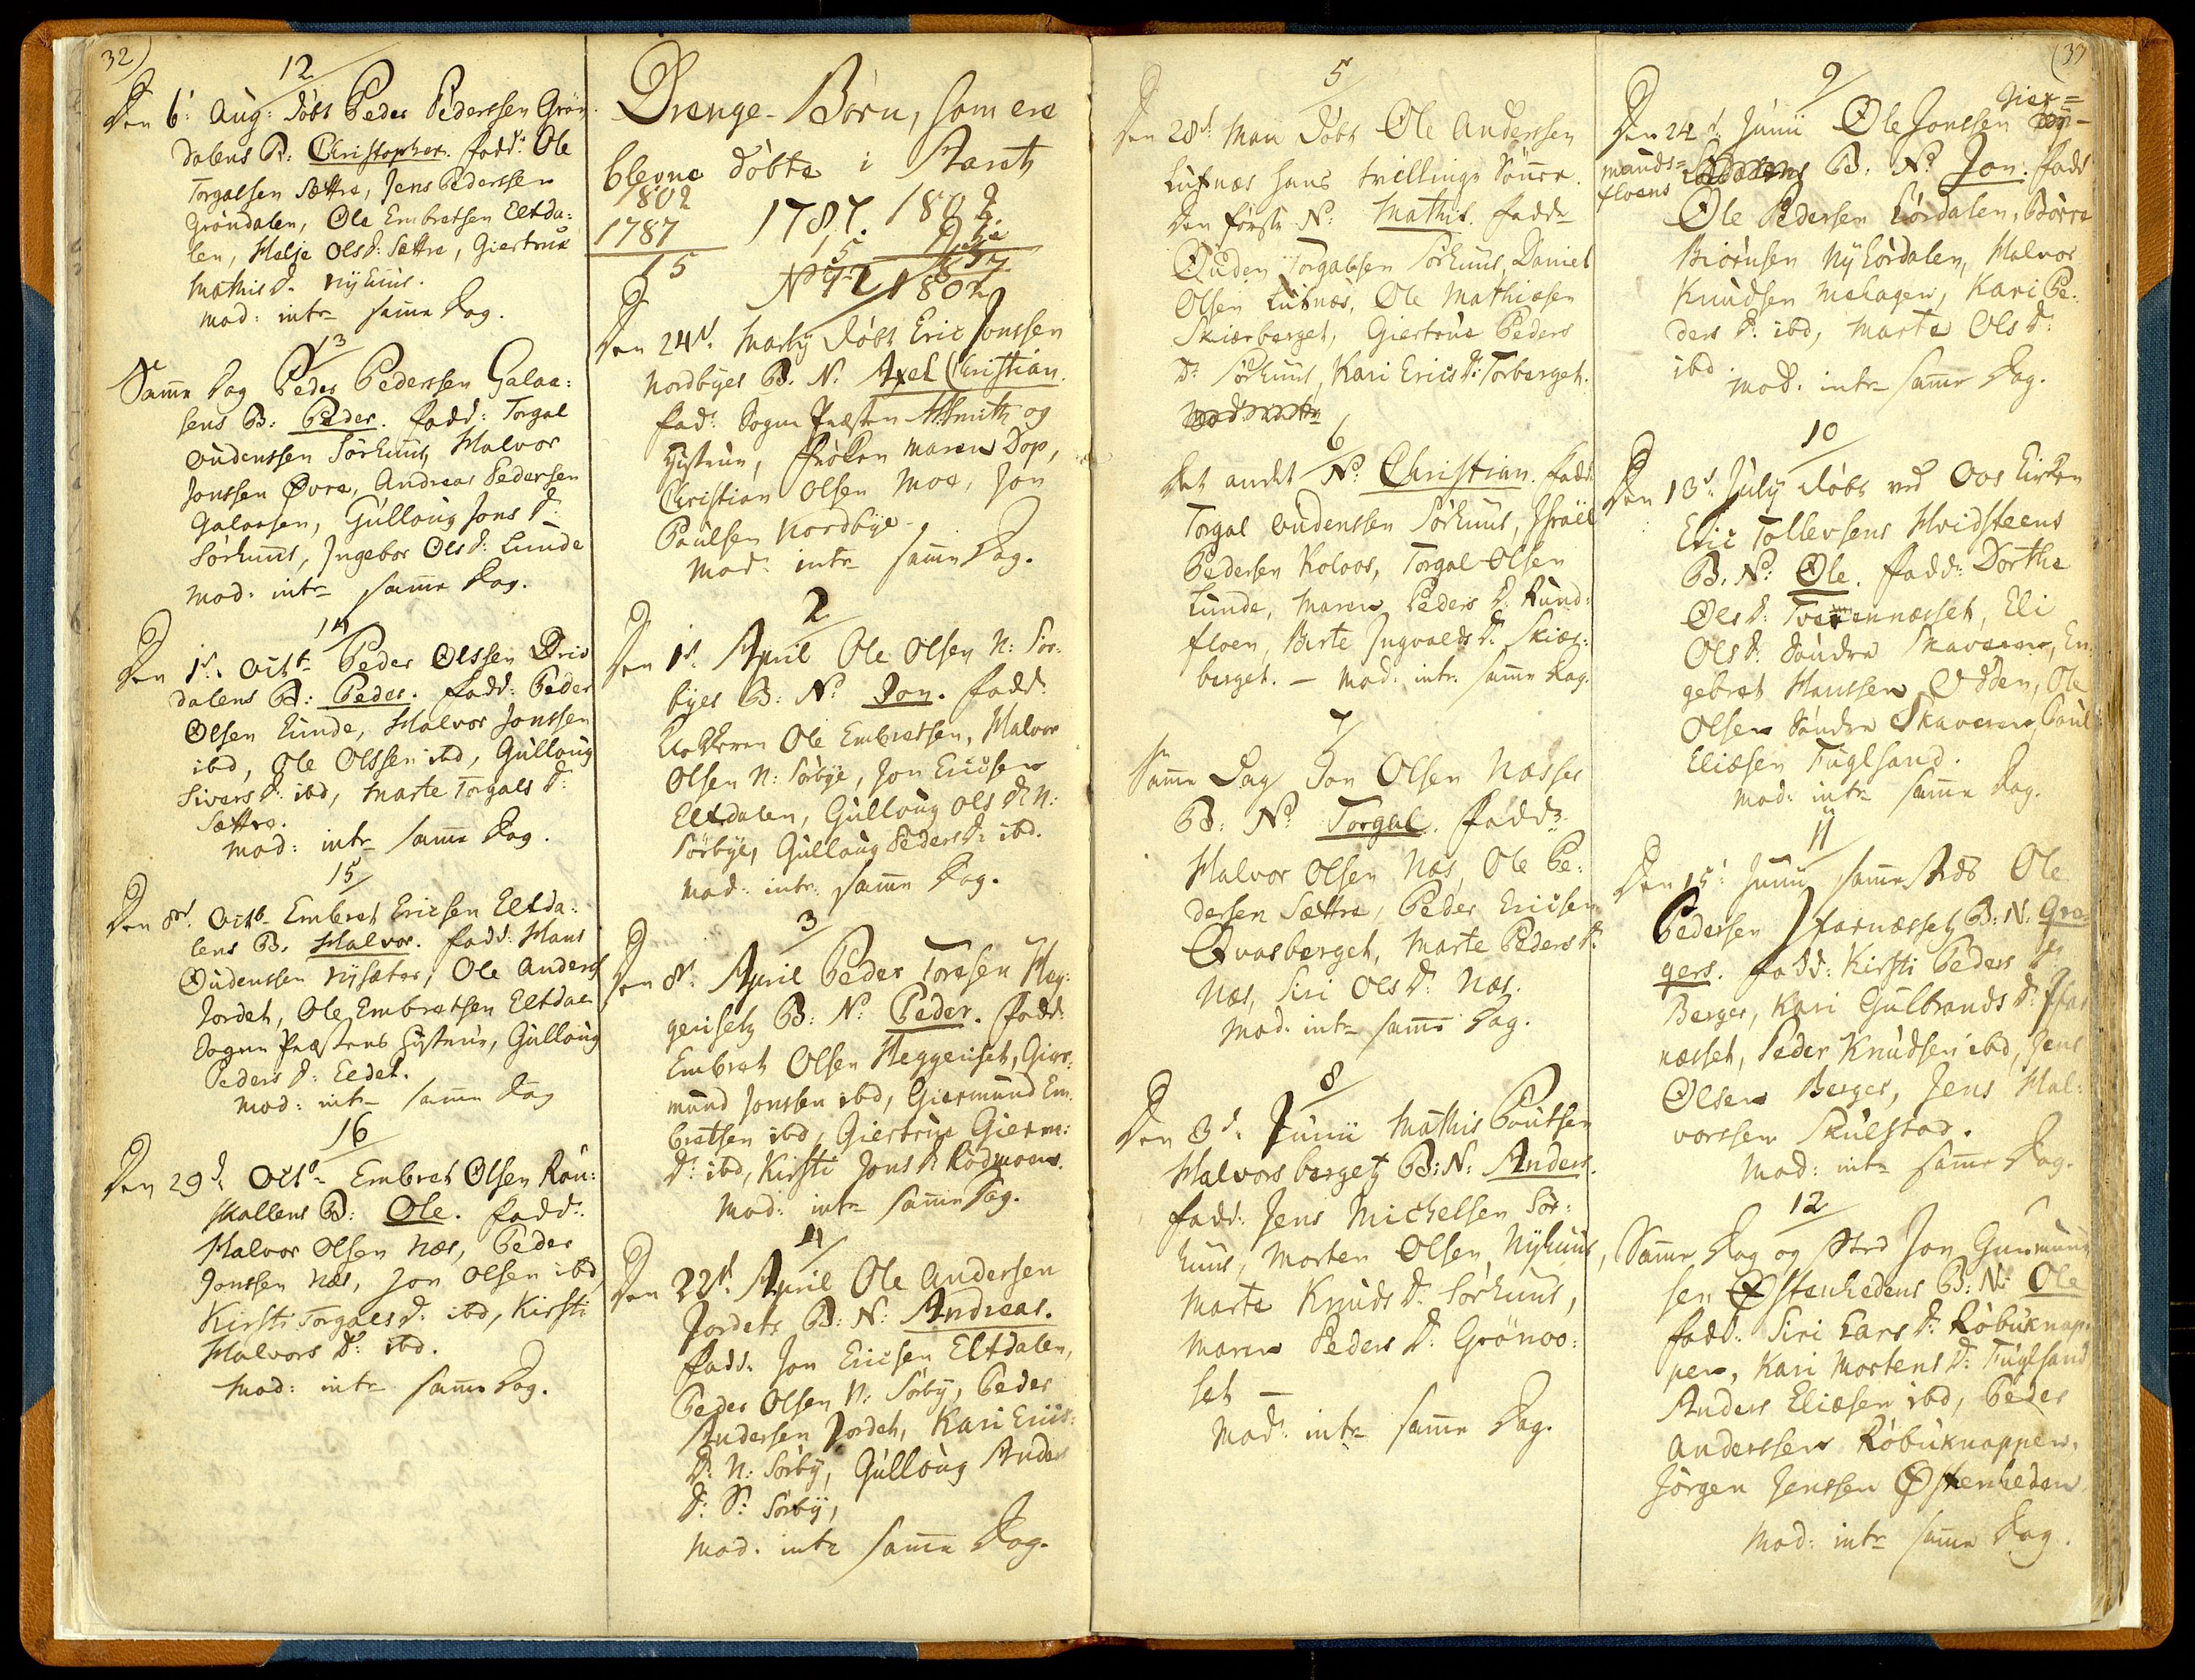 32)
12
Den 6t Aug: döbt Peder Pederssen Grön-
dalens B: Christopher. fadd: Ole
Torgalsen Sættre, Jens Pederssen
Gröndalen, Ole Embretsen Eltda:
len, Helje Ols D: Sættre, Giertrue
Mathis D. Nyhuus.
Mod: intr. samme Dag.
13
Samme Dag Peder Pederssen Galaa:
sens B: Peder. fadd: Torgal
Oudenssen Sörhuus, Halvor
Jonssen Øvre, Andreas Pedersen
Galaasen, Gulloug Jons D.
Sörhuus, Ingebor Ols D: Lunde
Mod: intr. samme Dag.
14
Den 1d. Octb. Peder Olssen Driv
dalens B: Peder. fadd: Peder
Olsen Lunde, Halvor Jonssen
ibd, Ole Olssen ibd, Gulloug
Sivers D: ibd, Marte Torgals D:
Sættre.
Mod: intr. samme Dag.
15
Den 8d. Octb. Embret Ericsen Eltda:
lens B. Halvor. fadd: Hans
Oudenssen Nysæter, Ole Anders
Jordet, Ole Embretsen Eltdal
Sogne Præstens Hustrue, Gulloug
Peders D: Eldet.
Mod: intr. samme Dag
16
Den 29d. Octb. Embret Olsen Rou:
skallens B: Ole. fadd:
Halvor Olsen Næs, Peder
Jonssen Næs, Jon Olsen ibd
Kirsti Torgals D: ibd, Kirsti
Halvors D: ibd.
Mod: intr. samme Dag.
Drenge-Börn, som ere
blevne döbte i Aaret
1802
1787 1787. 1802
15 15
No 1 1802
Den 24d. Martij döbt Eric Jonssen
Nordbyes B. N. Axel Christian.
fad: Sogne Præsten A: Smith og
Hustrue, Frøken Maren Dop,
Christian Olsen Moe, Jon
Paulsen Nordbye.
Mod: intr. samme Dag.
2
Den 1d. April Ole Olsen N: Sör-
byes B: N: Jon. fadd:
Klokkeren Ole Embretsen, Halvor
Olsen N: Sörbye, Jon Ericsen
Eltdalen, Gulloug Ols D. N:
Sörbye, Gulloug Peders D: ibd.
Mod: intr: samme Dag.
3
Den 8d. April Peder Toresen Heg:
geriset B: N: Peder. fadd:
Embret Olsen Heggeriset, Gier
mund Jonssen ibd, Giermund Em
bretsen ibd, Giertrue Gierm:
D: ibd, Kirsti Jons D: Rödmoen.
Mod: intr. samme Dag.
4
Den 22d. April Ole Andersen
Jordets B: N: Andreas.
fadd. Jon Ericsen Eltdalen,
Peder Olsen N: Sörby, Peder
Andersen Jordet, Kari Erics:
D: N: Sörby, Gulloug Anders
D: S: Sörby,
Mod: intr. samme Dag.
5
Den 28d. Maii döbt Ole Anderssen
Lufnæs hans tvillinge Sönner.
Den første N: Mathis. fadd:
Ouden Torgalssen Sörhuus, Daniel
Olsen Lufnæs, Ole Mathiesen
Skiærberget, Giertrue Peders
D: Sörhuus, Kari Erics D: Torberget.
6
Det andet N: Christian. fadd:
Torgal Oudenssen Sörhuus, Israel
Pedersen Kolaas, Torgal Olsen
Lunde, Maren Peders D: Rund:
floen, Berte Ingvalds D: Skiær:
berget. - Mod: intr. samme Dag.
7
Samme Dag Jon Olsen Næsses
B: N: Torgal. fadd:
Halvor Olsen Næs, Ole Pe:
dersen Sættre, Peder Ericsen
Qvasberget, Marte Peders D:
Næs, Siri Ols D: Næs.
Mod: intr. samme Dag.
8
Den 3d. Junii Mathis Poulsen
Halvorsberget B: N: Anders.
fadd: Jens Michelsen Sör:
huus, Morten Olsen Nyhuus,
Marte Knuds D: Sörhuus,
Maren Peders D: Grönoo:
set -
Mod: intr. samme Dag.
(33
9
Gier=
Den 24d. Junii Ole Jonssen
munds=
floens B: N: Jon. fadd
Ole Pedersen Lördalen, Börre
Biörnsen Nylördalen, Halvor
Knudsen Melagen, Kari Pe:
ders D: ibd, Marte Ols D:
ibd
Mod: intr. samme Dag.
10
Den 13d. July döbt ved Oos Kirken
Eric Tollevsens Hvidsteens
B. N: Ole. fadd: Dorthe
Ols D: Tværennæsset, Eli
Ols D: Söndre Skaveren, En
gebret Hanssen Odden, Ole
Olsen Söndre Skaveren, Poul
Eliesen Fuglsand.
Mod: intr. samme Dag.
11
Den 15d: Junij samme Sted Ole
Pedersen Isfarnæsset B: N: Gre-
gers. fadd: Kirsti Peders D:
Berger, Kari Gulbrands D: Isfar
næsset, Peder Knudsen ibd, Jens
Olsen Berger, Jens Hal:
vorssen Skulstad.
Mod: intr. samme Dag.
12
Samme Dag og Sted Jon Gunmund
sen Østenhedens B: N: Ole
fadd: Siri Lars D: Röbuknap-
pen, Kari Mortens D: Fuglsand
Anders Eliesen ibd, Peder
Anderssen Röbuknappen,
Jörgen Jenssen Østenheden
Mod: intr. samme Dag.